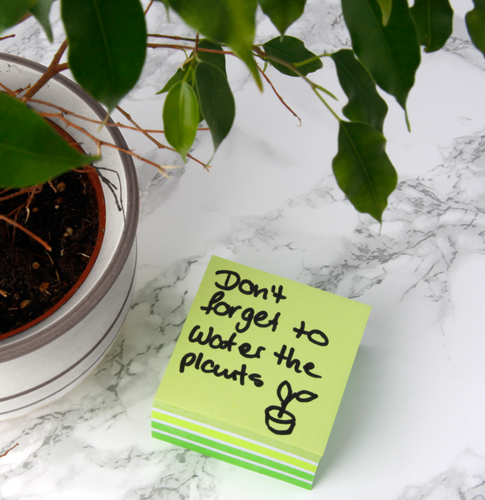 Don't
forget to
water the
plants